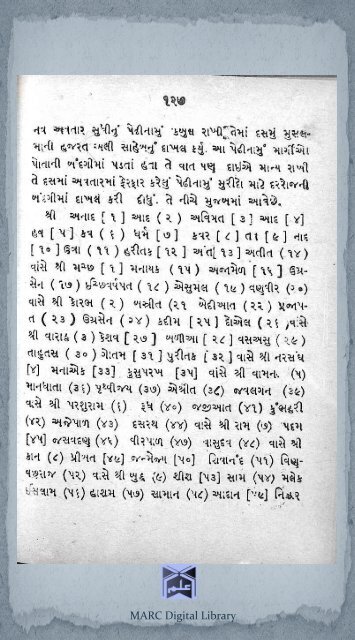 ૧૨૭
નવ અવતાર સુધીનું પેઢીનામું કબુલ રાખી તેમાં દસમું મુસલ-
માની હજરત અલી સાહેબનું દાખલ કર્યું. આ પેઢીનામું માર્ગીઓ
પોતાની બંદગીમાં પડતાં હતા તે વાત પણ દાઈએ માન્ય રાખી
તે દસમાં અવતારમાં ફેરફાર કરેલું પેઢીનામું મુરીદો માટે દરરોજની
બંદગીમાં દાખલ કરી દીધું. તે નીચે મુજબમાં આવેછે.
શ્રી અનાદ [ ૧ ] આદ ( ૨ ) અવિગત [ ૩ ] આદ [ ૪ ]
હવ [ ૫ ] કવ ( ૬ ) ધર્મ [ ૭ ] કવર [ ૮ ] તર [ ૯ ] નાદ
[ ૧૦ ] ઉત્રા ( ૧૧ ) હરીતક [ ૧૨ ] અંત [ ૧૩ ] અતીત ( ૧૪ )
વાંસે શ્રી મચ્છ [ ૧ ] મનાયક ( ૧૫ ) અજામેળ [ ૧૬ ] ઉગ્ર-
સેન ( ૧૭ ) ( ૧૮ ) એસુમલ ( ૧૯ ) વણુવીર ( ૨૦ )
વાસે શ્રી કોરભ ( ૨ ) બસ્રીત ( ૨૧ બેદીઆત ( ૨૨ ) પ્રજાપ-
ત ( ૨૩ ) ઉગ્રસેન ( ૨૪ ) કદીમ [ ૨૫ ] દૈએલ ( ૨૬ ) વાંસે
શ્રી વારાહ ( ૩ ) કેશવ [ ૨૭ ] બળીઆ [ ૨૮ ] વસઅસુ ( ૨૯ )
તાહુતસ ( ૩૦ ) ગોતમ [ ૩૧ ] પુરીતક [ ૩૨ ] વાસે શ્રી નરસંધ
[૪] મનાઓક [૩૩] કુસુપરખ [૩૫] વાંસે શ્રી વામન (૫)
માનધાતા (૩૬) પૃથ્વીજય (૩૭) એશ્રીત (૩૮) જવલગન (૩૯)
વાસે શ્રી પરશુરામ (૬) રૂધ (૪૦) જજીઆત (૪૧) કુંભહરી
(૪૨) અજેપાળ (૪૩) દસરથ (૪૪) વાસે શ્રી રામ (૭) પદમ
[૪૫] જસવદણુ (૪૬) વીરપાળ (૪૭) વાસુદેવ (૪૮) વાસે શ્રી
કાન (૮) પ્રીઅત [૪૯] જન્મેજય [૫૦] શિવાનંદ (૫૧) વિણુ-
વછરાજ (૫૨) વાસે શ્રી બુદ્ધ (૯) શીશ [૫૩] સામ (૫૪) મલેક
ઈસલામ (૫૬) હાશમ (૫૭) સામાન (૫૮) આદાન [૫૯] નિઝર
علم
MARC Digital Library